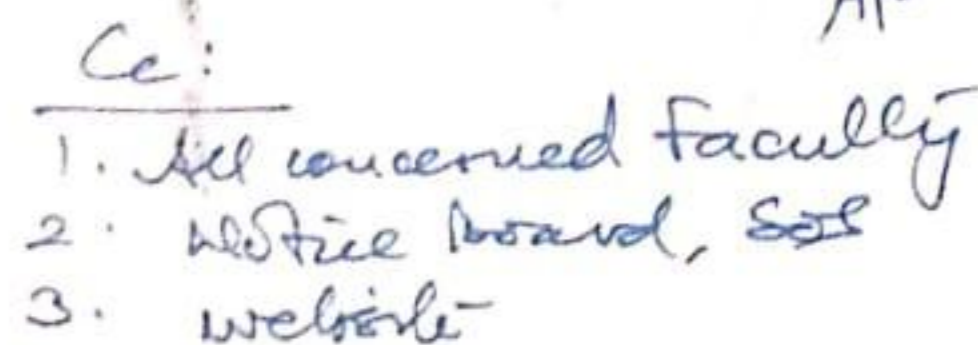 Cc:
1. All concerned Faculty
2. Notice Board, SOS
3. website